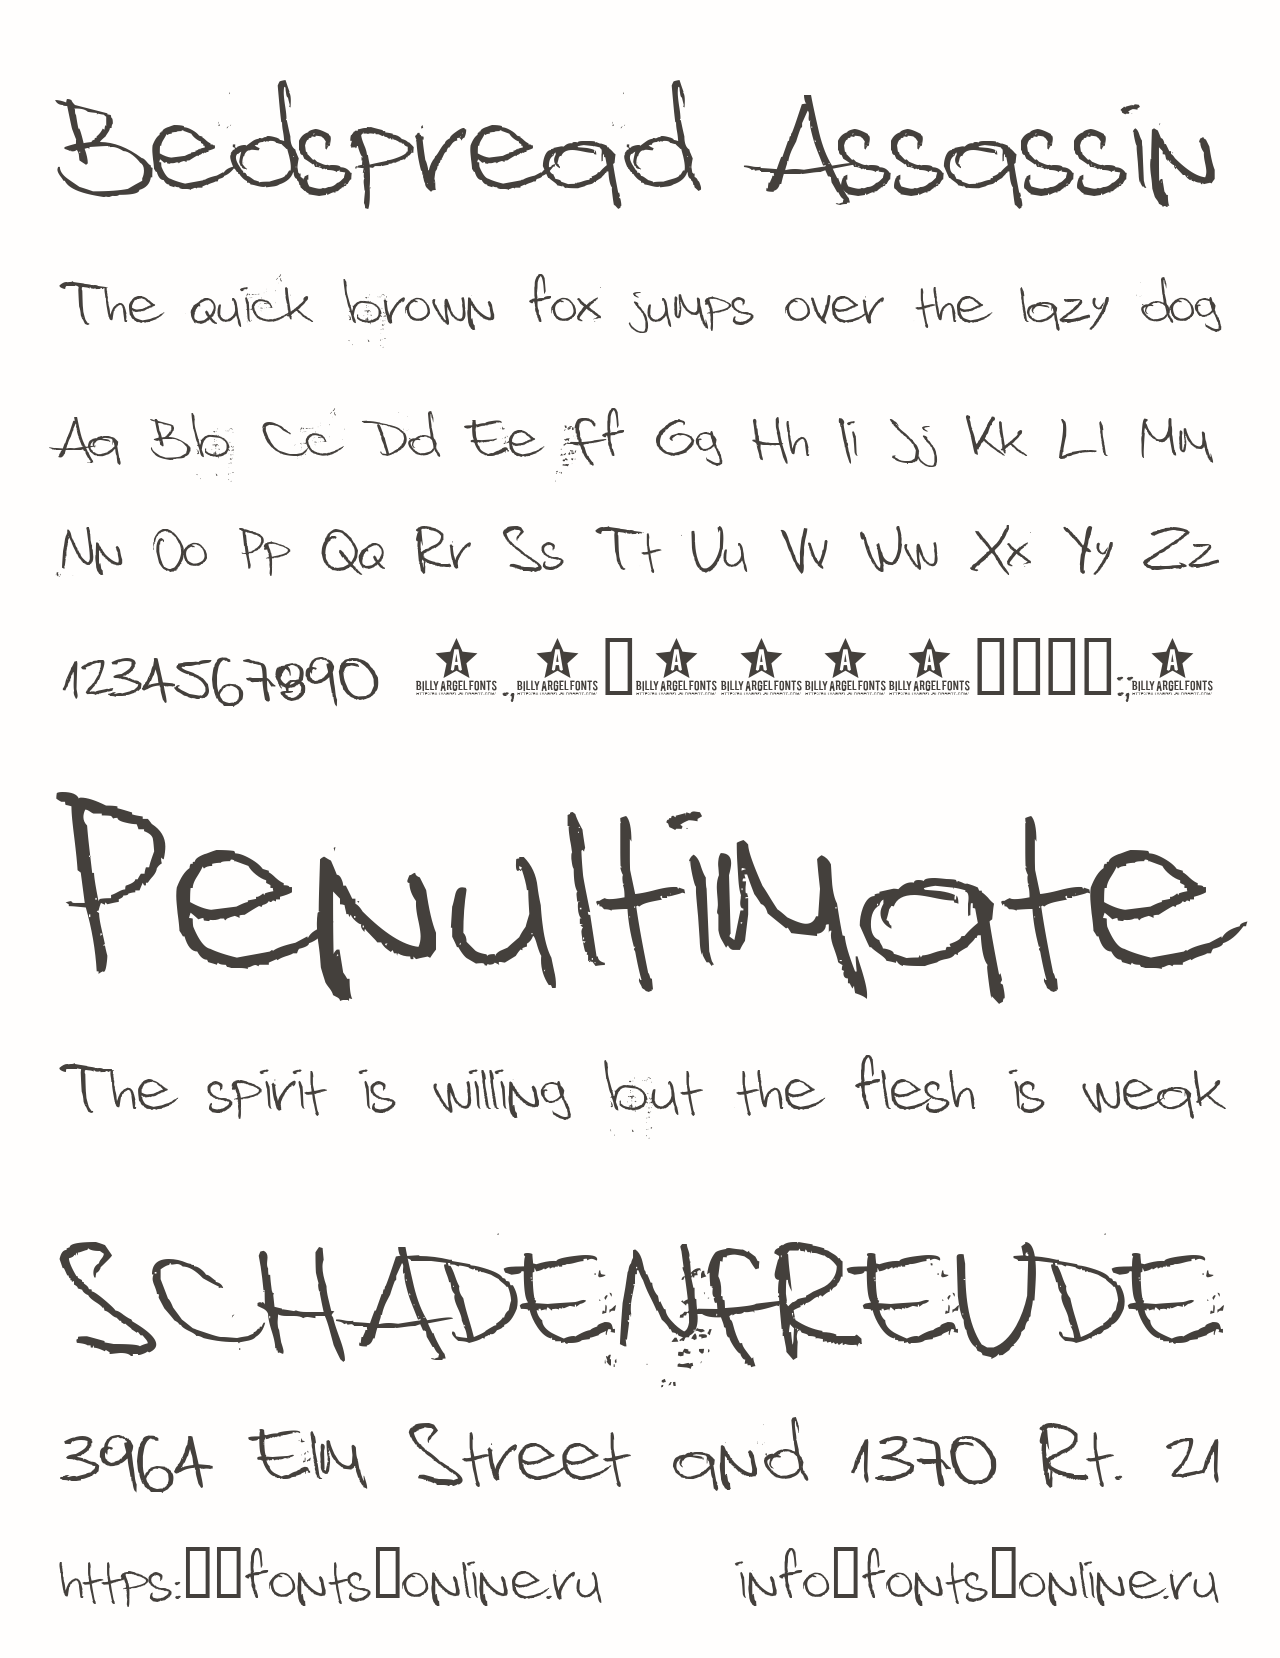 Bedspread Assassin
The quick brown fox jumps over the lazy dog
Aa Bb Cc Dd Ee Ff Gg Hh Ii Jj Kk Ll Mm
Nn Oo Pp Qq Rr Ss Tt Uu Vv Ww Xx Yy Zz
1234567890 BILLY ARGEL FONTS .,BILLY ARGEL FONTS □BILLY ARGEL FONTS BILLY ARGEL FONTS BILLY ARGEL FONTS BILLY ARGEL FONTS □□□□:;BILLY ARGEL FONTS
Penultimate
The spirit is willing but the flesh is weak
SCHADENFREUDE
3964 Elm Street and 1370 Rt. 21
https:□□fonts□online.ru info□fonts□online.ru